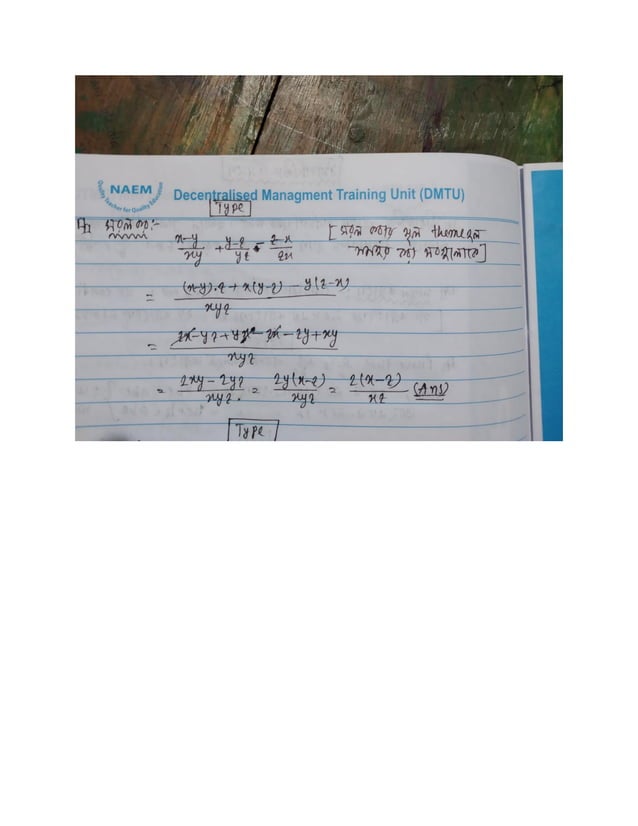 NAEM
Quality Teacher for Quality Education
Decentralised Managment Training Unit (DMTU)
Type
সরল কর:-
x-y/xy + y-z/yz - z-x/zx [সরল করার মূল theme হল
সমহর করা সবগুলোকে]
= (x-y).z + x(y-z) - y(z-x) / xyz
= zx-yz+yx-zx-zy+xy / xyz
= 2xy-2yz / xyz. = 2y(x-z) / xyz = 2(x-z) / xz (Ans)
Type